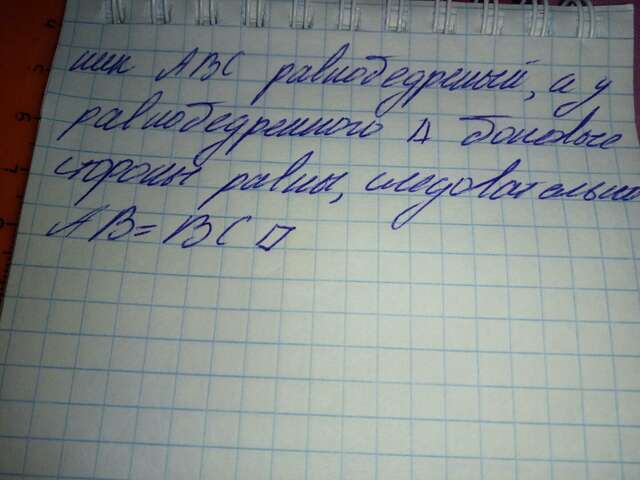 ник ABC равнобедреный, а у
равнобедренного Δ боковые
стороны равны, следовательно
AB = BC □